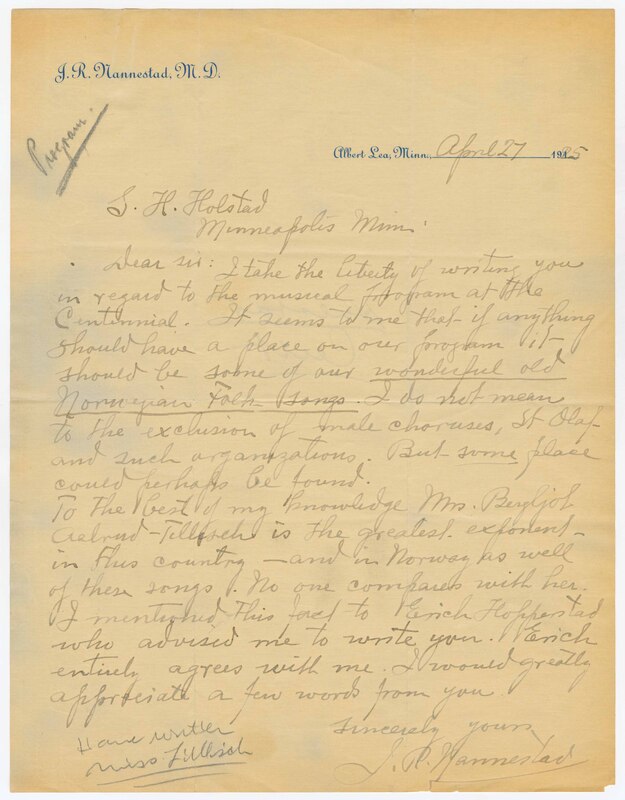 J. R. Nannestad, M. D.
Program.
Albert Lea, Minn., April 27 1925
S. H. Holstad
Minneapolis Minn.
Dear sir: I take the liberty of writing you
in regard to the musical program at the
Centennial. It seems to me that if anything
should have a place on our program it
should be some of our wonderful old
Norwegian Folk songs. I do not mean
to the exclusion of male choruses, St Olaf
and such organizations. But some place
could perhaps be found.
To the best of my knowledge Mrs. Bergljot
Aalrud-Tillisch is the greatest exponent
in this country — and in Norway as well
of these songs. No one compares with her.
I mentioned this fact to Erich Hopperstad
who advised me to write you. Erich
entirely agrees with me. I would greatly
appreciate a few words from you
Sincerely yours
J. R. Nannestad
Have written
Miss Tillisch